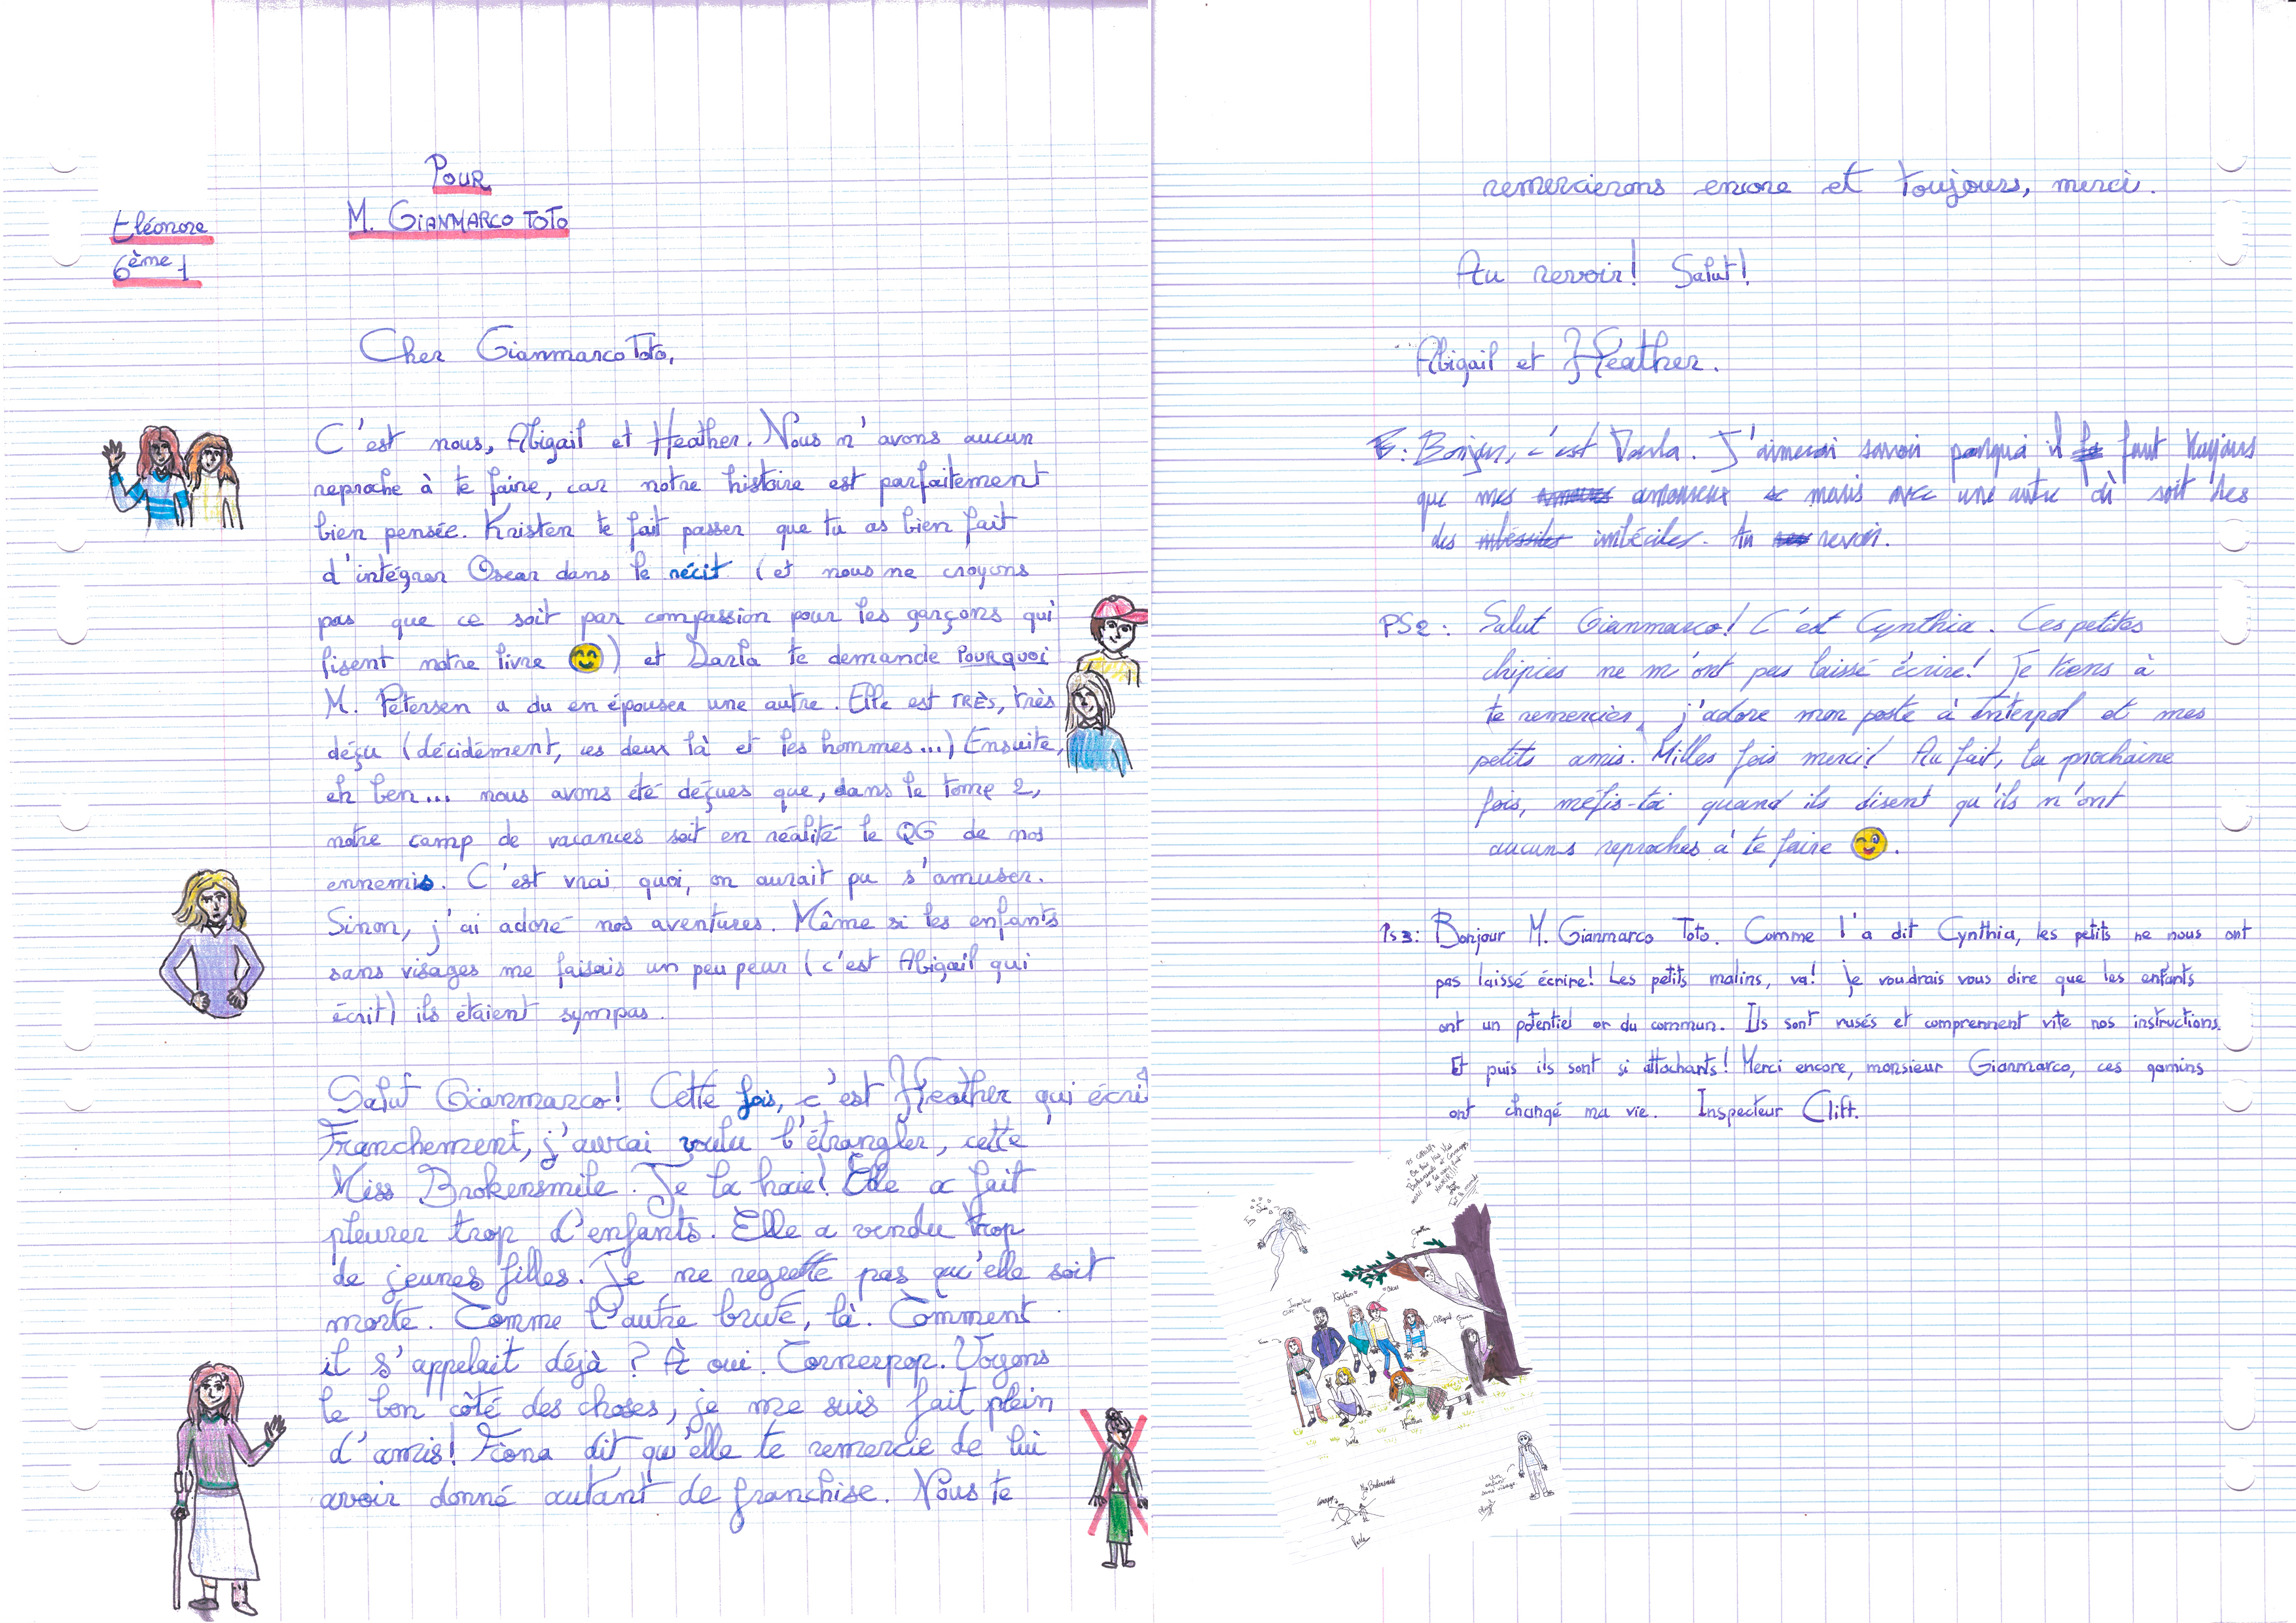 Pour
M. Gianmarco Toto
Eléonore
6ème 1
Cher Gianmarco Toto,
C'est nous, Abigail et Heather. Nous n'avons aucun
reproche à te faire, car notre histoire est parfaitement
bien pensée. Kristen te fait passer que tu as bien fait
d'intégrer Oscar dans le récit (et nous ne croyons
pas que ce soit par compassion pour les garçons qui
lisent notre livre 😊) et Darla te demande POURQUOI
M. Petersen a du en épouser une autre. Elle est TRÈS, très
déçu (décidément, ces deux là et les hommes...) Ensuite,
eh ben... nous avons été déçues que, dans le tome 2,
notre camp de vacances soit en réalité le QG de nos
ennemis. C'est vrai quoi, on aurait pu s'amuser.
Sinon, j'ai adoré nos aventures. Même si les enfants
sans visages me faisais un peu peur (c'est Abigail qui
écrit) ils étaient sympas.
Salut Gianmarco! Cette fois, c'est Heather qui écrit
Franchement, j'aurai voulu l'étrangler, cette
Miss Brokensmile. Je la haie! Elle a fait
pleurer trop d'enfants. Elle a vendu trop
de jeunes filles. Je ne regrette pas qu'elle soit
morte. Comme l'autre brute, là. Comment
il s'appelait déjà ? À oui. Cornerpop. Voyons
le bon côté des choses, je me suis fait plein
d'amis! Fiona dit qu'elle te remercie de lui
avoir donné autant de franchise. Nous te
remercierons encore et toujours, merci.
Au revoir! Salut!
Abigail et Heather.
Bonjour, c'est Darla. J'aimerai savoir pourquoi il faut toujours
que mes amoureux maris avec une autre soit des
des imbéciles. Au revoir.
PS2: Salut Gianmarco! C'est Cynthia. Ces petites
chipies ne m'ont pas laissé écrire! Je tiens à
te remercier, j'adore mon poste à Interpol et mes
petits amis. Milles fois merci! Au fait, la prochaine
fois, méfis-toi quand ils disent qu'ils n'ont
aucuns reproches à te faire 😉.
PS3: Bonjour M. Gianmarco Toto. Comme l'a dit Cynthia, les petits ne nous ont
pas laissé écrire! Les petits malins, va! Je voudrais vous dire que les enfants
ont un potentiel or du commun. Ils sont rusés et comprennent vite nos instructions.
Et puis ils sont si attachants! Merci encore, monsieur Gianmarco, ces gamins
ont changé ma vie. Inspecteur Clift.
Cynthia
Inspecteur
Clift
Kristen
Oscar
Abigail
Darla
Heather
Un
enfant
sans visage
Miss Brokensmile